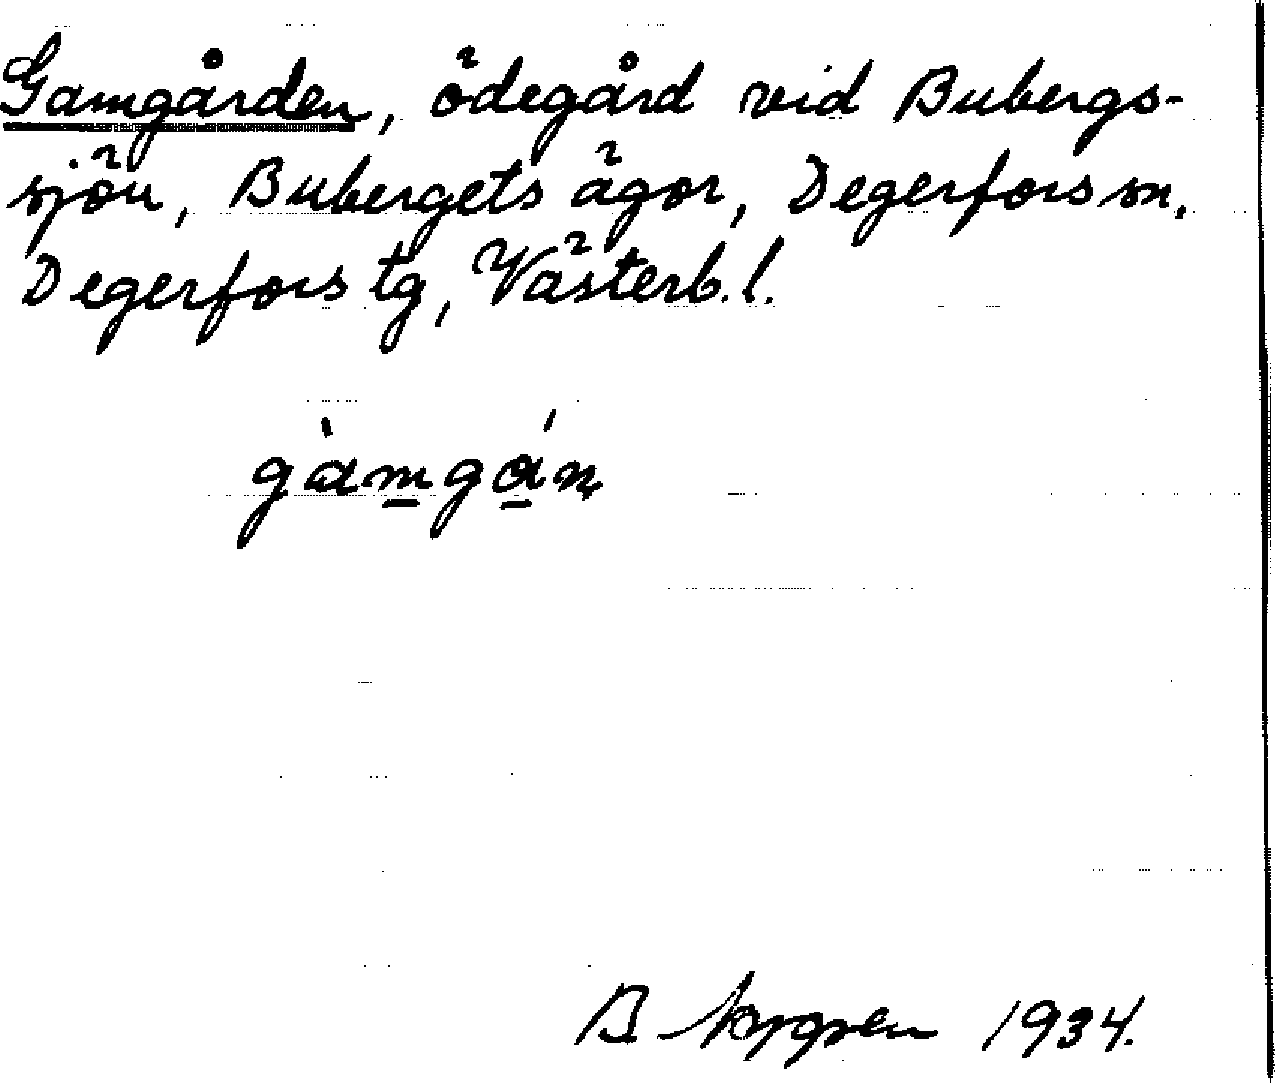 Gamgården, ödegård vid Bubergs-
sjön, Bubergets ägor, Degerfors sn,
Degerfors tg, Västerb. l.
gàmgán
B 1934.